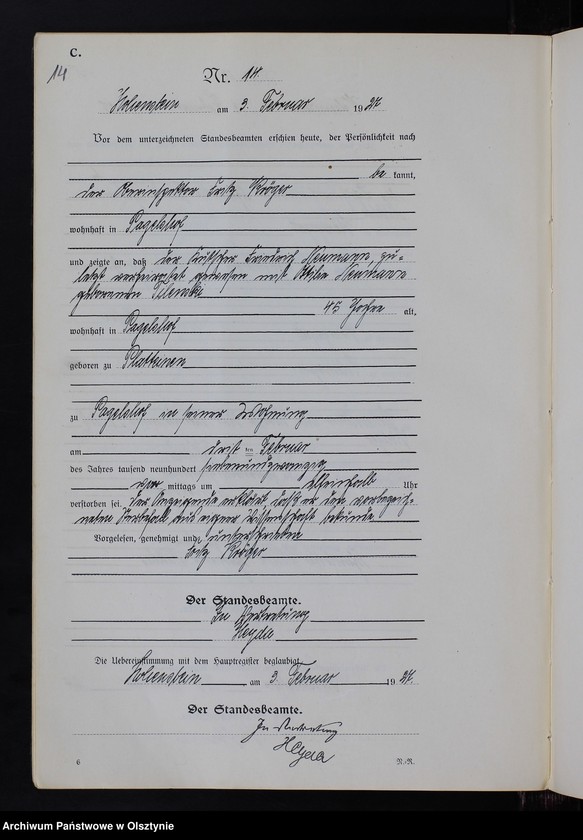 C.
14
Nr. 14
Hohenstein am 3. Februar 1927
Vor dem unterzeichneten Standesbeamten erschien heute, der Persönlichkeit nach
be kannt,
der Oberinspektor Fritz Kröger
wohnhaft in Pagelshof
und zeigte an, daß der Friedrich Neumann, zu-
letzt verheiratet gewesen mit Ottilie Neumann
geborenen
45 Jahre alt,
wohnhaft in Pagelshof
geboren zu Platteinen
zu Pagelshof in seiner Wohnung
am drei ten Februar
des Jahres tausend neunhundert siebenundzwanzig
vor mittags um elfeinhalb Uhr
verstorben sei. Der Anzeigende erklärt daß er den vorbezeich-
neten Sterbefall aus eigener Wissenschaft bekunde
Vorgelesen, genehmigt und unterschrieben
Fritz Kröger
Der Standesbeamte.
In Vertretung
Heyda
Die Uebereinstimmung mit dem Hauptregister beglaubigt
Hohenstein am 3. Februar 1927.
Der Standesbeamte.
In Vertretung
Heyda
6
Archiwum Państwowe w Olsztynie